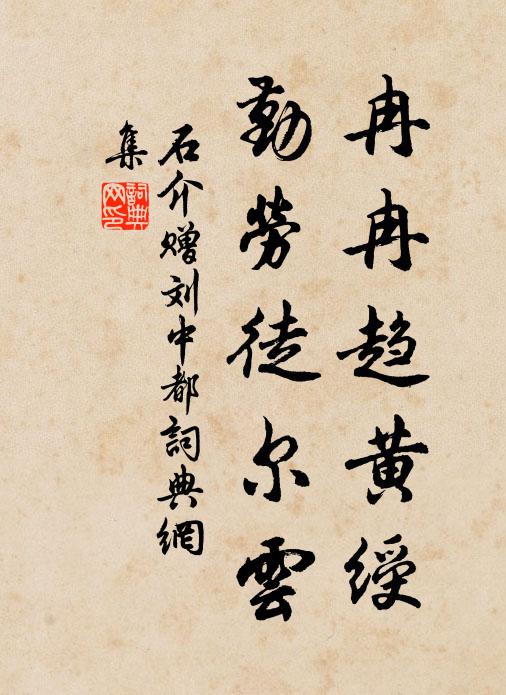 冉冉趋黄绶
勤劳徒尔雲
石介赠刘中都詞典網
集
詞典
网印